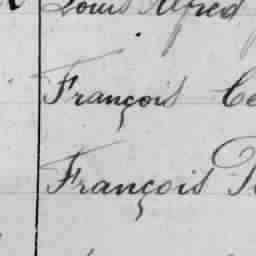 Louis Alfred
François
François